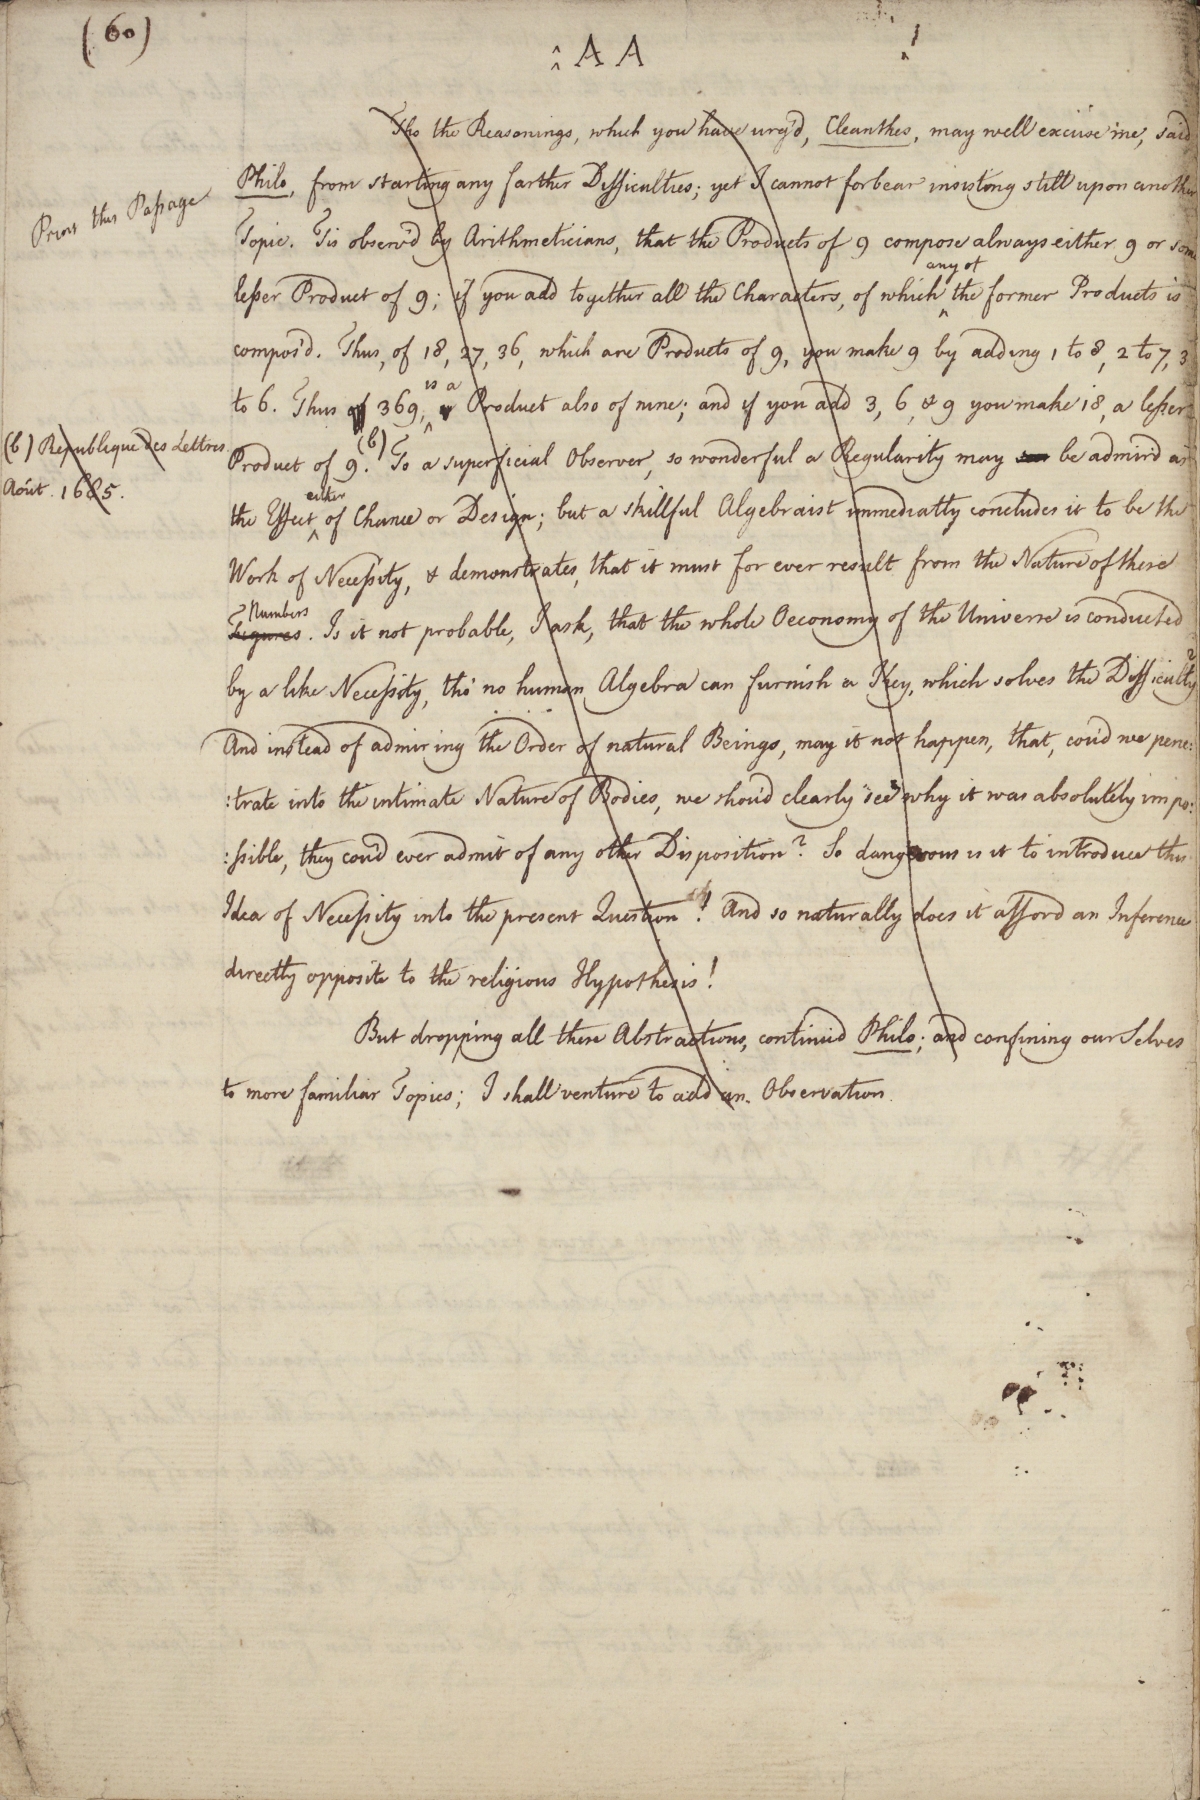 (60)
AA
Tho the Reasonings, which you have urg'd, Cleanthes, may well excuse me, said
Philo, from starting any farther Difficulties; yet I cannot forbear insisting still upon another
Print this Passage
Topic. Tis observ'd by Arithmeticians, that the Products of 9 compose always either 9 or some
lesser Product of 9; if you add together all the Characters, of which any of the former Products is
compos'd. Thus, of 18, 27, 36, which are Products of 9, you make 9 by adding 1 to 8, 2 to 7, 3
to 6. Thus 369, is a Product also of nine; and if you add 3, 6, & 9 you make 18, a lesser
(b) Republique des Lettres
Aôut. 1685.
Product of 9.(b) To a superficial Observer, so wonderful a Regularity may be admir'd as
the Effect either of Chance or Design; but a skillful Algebraist immediatly concludes it to be the
Work of Necessity, & demonstrates, that it must for ever result from the Nature of these
Figures Numbers. Is it not probable, I ask, that the whole Oeconomy of the Universe is conducted
by a like Necessity, tho' no human Algebra can furnish a Key, which solves the Difficulty?
And instead of admiring the Order of natural Beings, may it not happen, that, cou'd we pene:
:trate into the intimate Nature of Bodies, we shou'd clearly see why it was absolutely impo:
:ssible, they cou'd ever admit of any other Disposition? So dangerous is it to introduce this
Idea of Necessity into the present Question! And so naturally does it afford an Inference
directly opposite to the religious Hypothesis!
But dropping all these Abstractions, continu'd Philo; and confining ourselves
to more familiar Topics; I shall venture to add an Observation.